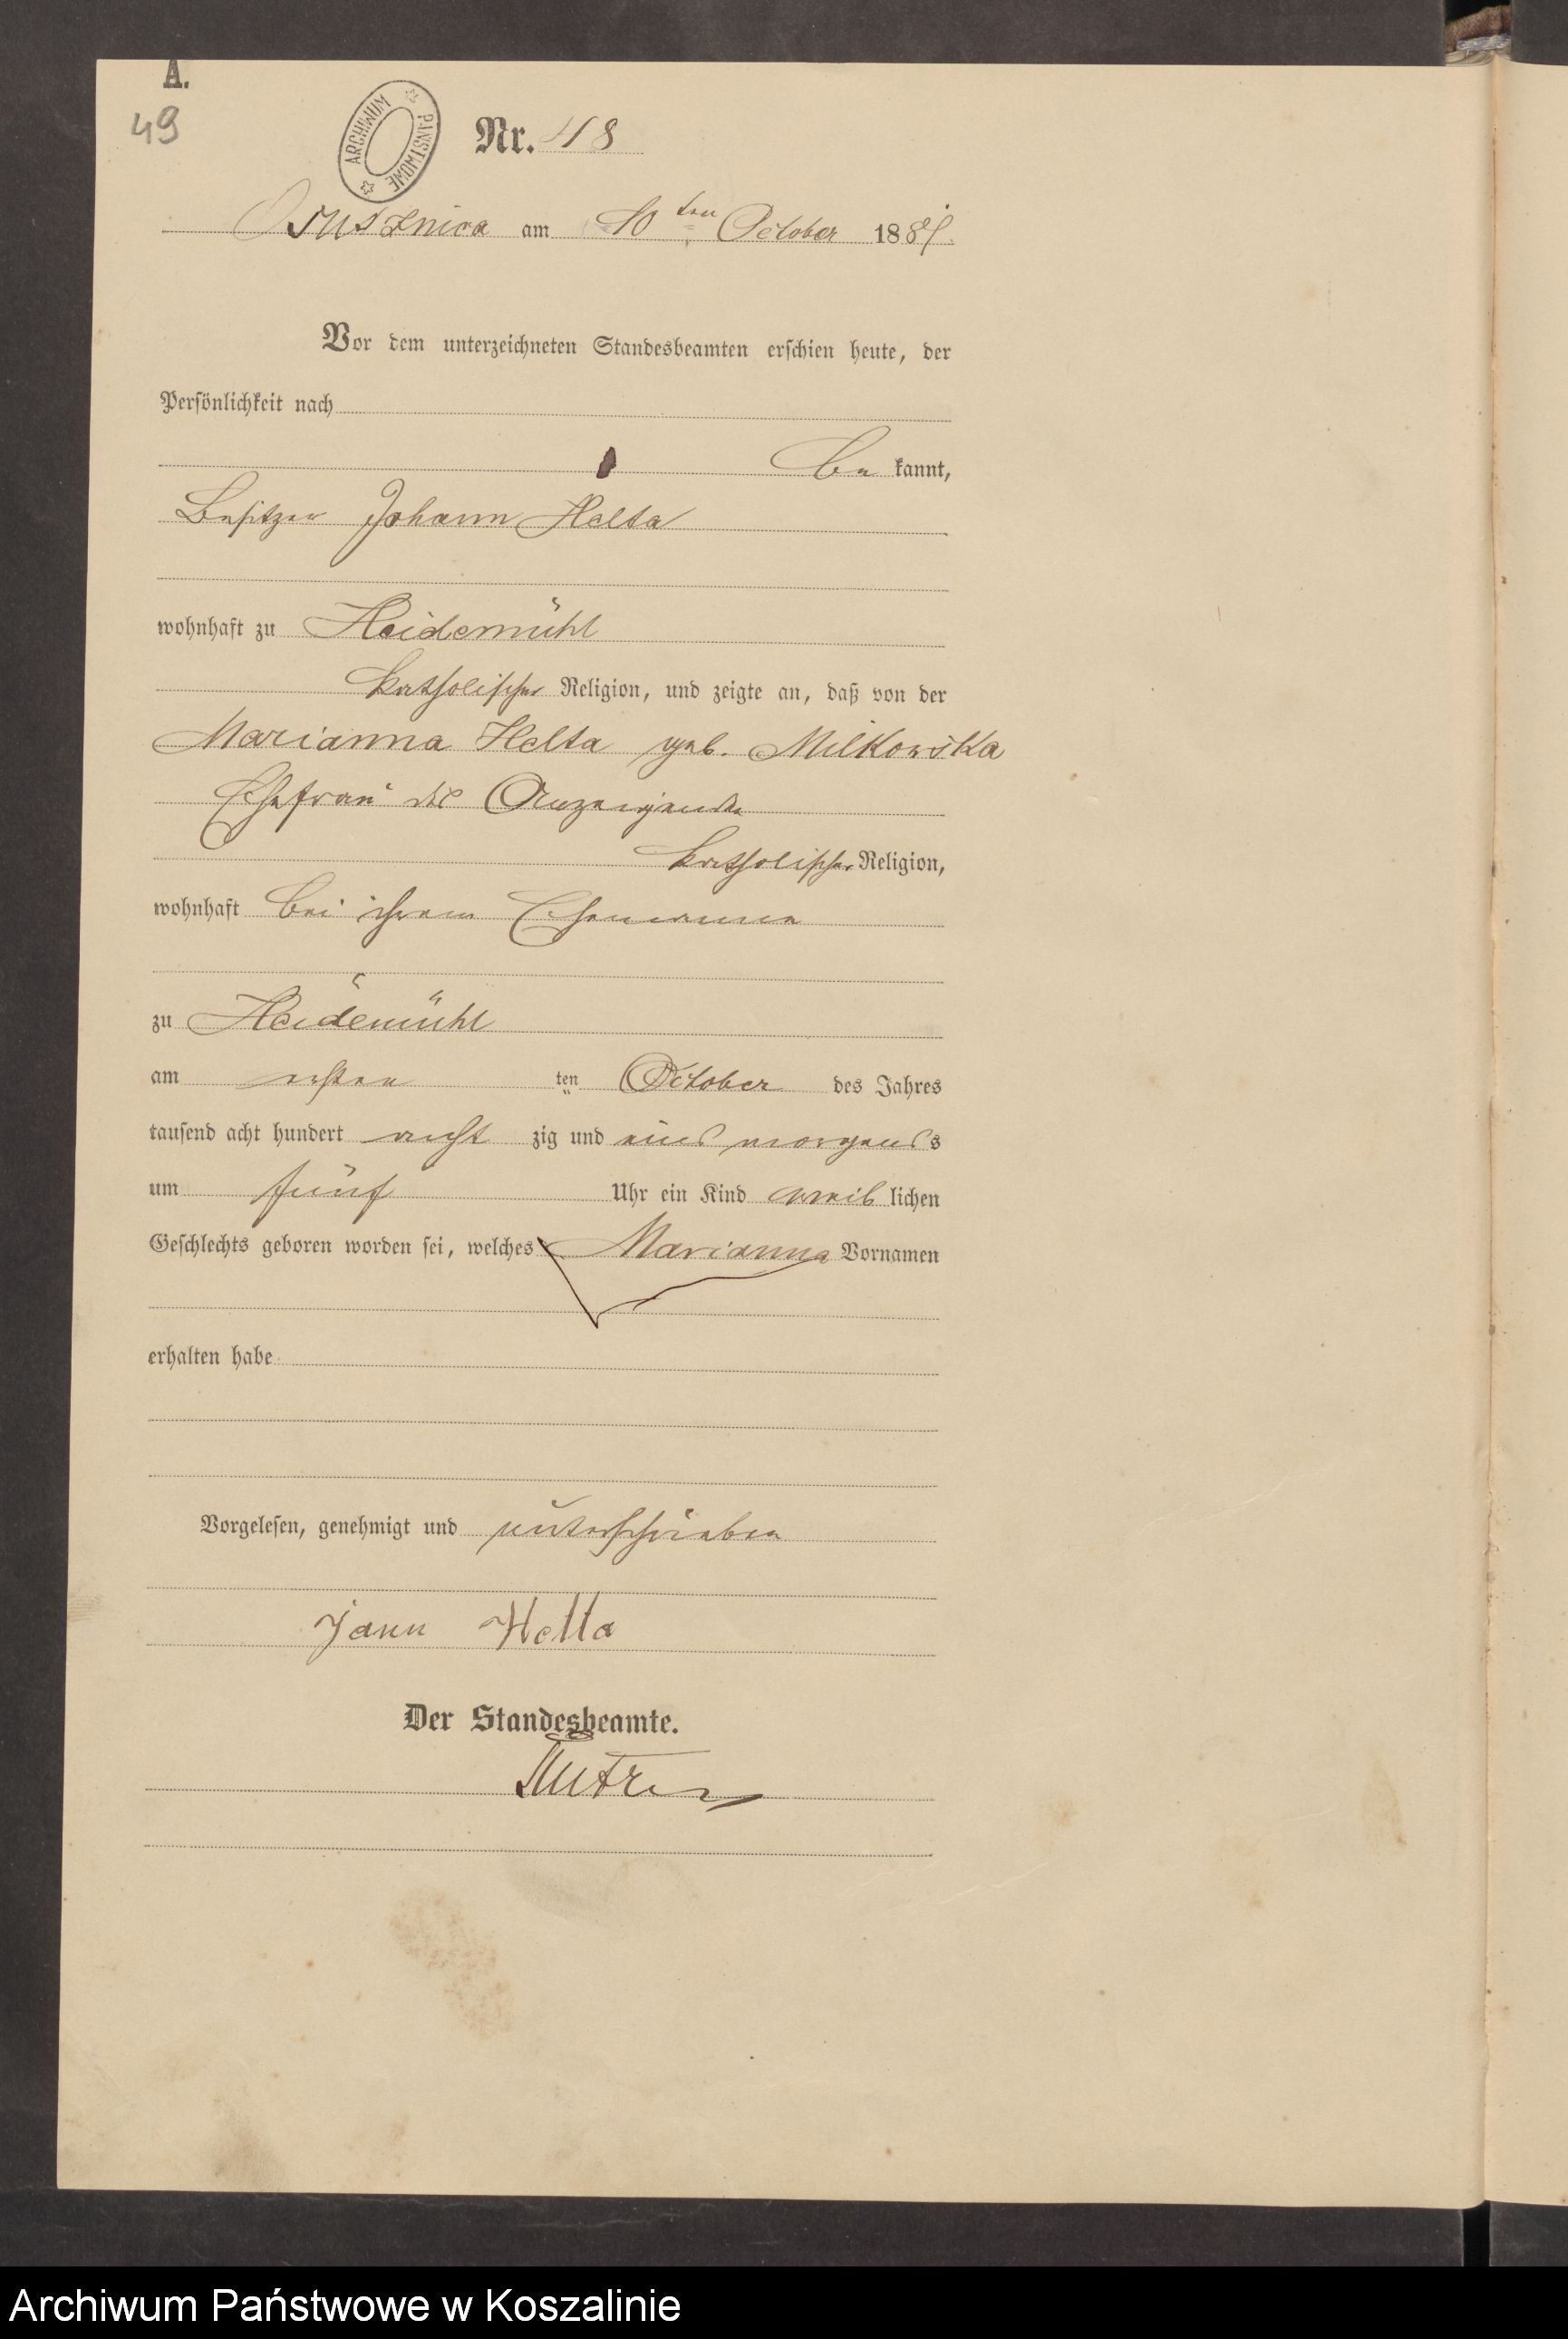 A.
49
ARCHIWUM PAŃSTWOWE
Nr. 48
Ossusznica am 10 ten October 1881.
Vor dem unterzeichneten Standesbeamten erschien heute, der
Persönlichkeit nach
be kannt,
Besitzer Johann Helta
wohnhaft zu Heidemühl
katholischer Religion, und zeigte an, daß von der
Marianna Helta geb. Milkowska
Ehefrau des Anzeigenden
katholischer Religion,
wohnhaft bei ihrem Ehemanne
zu Heidemühl
am ersten ten October des Jahres
tausend acht hundert acht zig und eins morgens s
um fünf Uhr ein Kind weib lichen
Geschlechts geboren worden sei, welches Marianna Vornamen
erhalten habe
Vorgelesen, genehmigt und unterschrieben
Jann Helta
Der Standesbeamte.
Archiwum Państwowe w Koszalinie